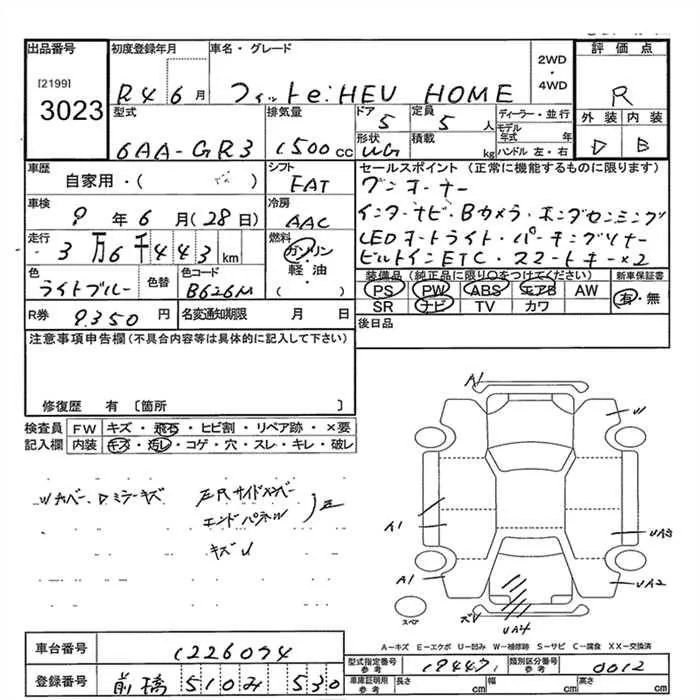 出品番号
初度登録年月
車名・グレード
2WD・4WD
評価点
[2199]
3023
R4 6月
フィットe:HEV HOME
R
型式
排気量
ドア
定員
ディーラー・並行
外装 内装
6AA-GR3
1500cc
5
5人
モデル年式 年
D B
形状
積載
ハンドル 左・右
WG
kg
車歴
自家用・( )
シフト
FAT
セールスポイント(正常に機能するものに限ります)
ワンオーナー
車検
9年6月(28日)
冷房
AAC
インターナビ・Bカメラ・ホンダセンシング
走行
3万6千443km
燃料
ガソリン・軽油
( )
LEDオートライト・パーキングソナー
ビルトインETC・スマートキー×2
色
ライトブルー
色替
色コード
B626M
装備品(純正品に限り○をつけてください)
新車保証書
PS PW ABS エアB AW
有・無
SR ナビ TV カワ
R券
9350円
名変通知期限 月 日
後日品
注意事項申告欄(不具合内容等は具体的に記入して下さい)
修復歴 有〔箇所 〕
検査員記入欄
FW キズ・飛石・ヒビ割・リペア跡・×要
内装 キズ・汚レ・コゲ・穴・スレ・キレ・破レ
ドミラーキズ
Rサイドメンバー
エンドパネル
キズU
A1
W
A1
UA3
A1
UA2
スペア
UA4
A-キズ E-エクボ U-凹み W-補修跡 S-サビ C-腐食 XX-交換済
車台番号
1226094
型式指定番号 参考
19447
類別区分番号 参考
0012
登録番号
前橋 510 み 530
車庫証明用 参考
長さ cm
幅 cm
高さ cm